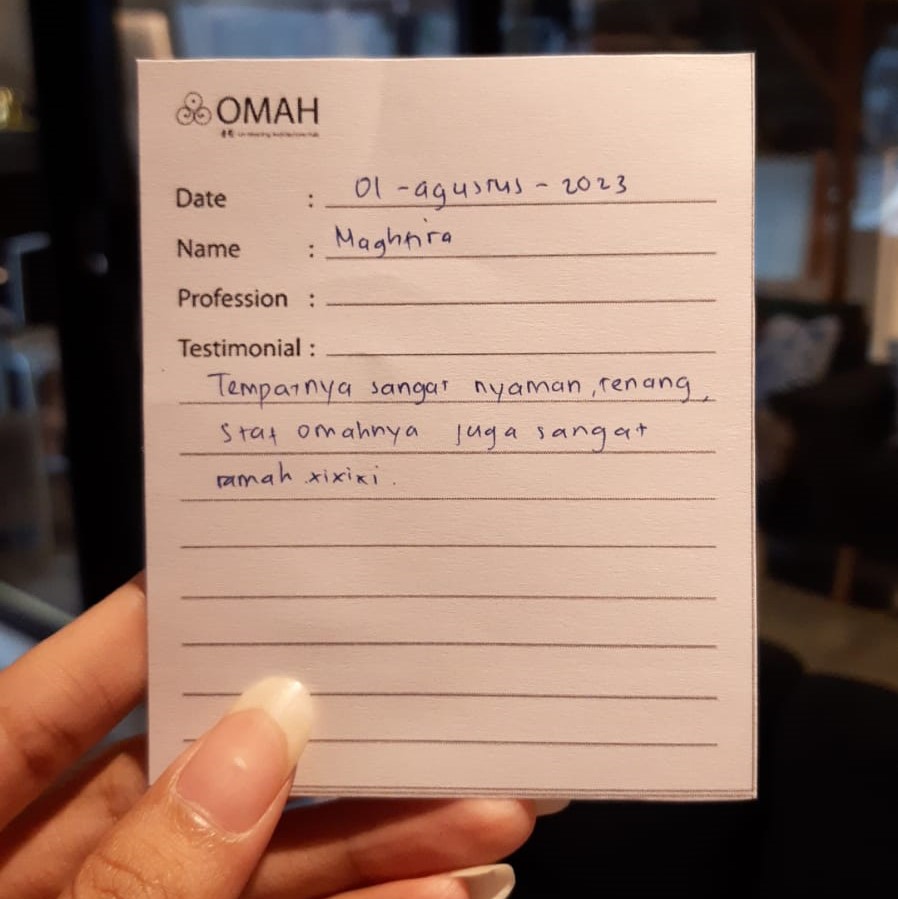 OMAH
Date : 01 - agustus - 2023
Name : Maghfira
Profession :
Testimonial :
Tempatnya sangat nyaman, tenang,
staf omahnya juga sangat
ramah xixixi.